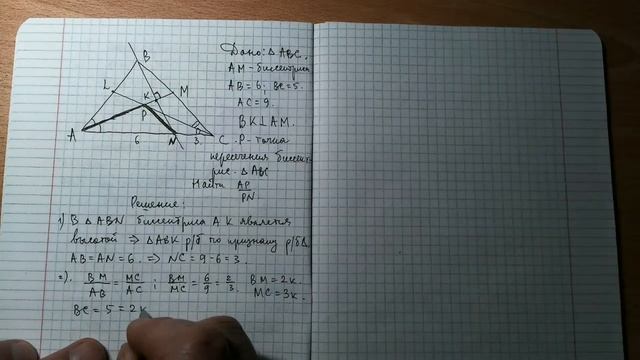 B
L
M
K
P
A
6
N
3
C
Дано: △ABC.
AM - биссектриса
AB = 6; BC = 5.
AC = 9.
BK ⊥ AM.
P - точка
пересечения биссект-
рис △ABC
Найти AP/PN
Решение:
1) В △ABN биссектриса AK является
высотой ⇒ △ABK р/б по признаку р/б△
AB = AN = 6. ⇒ NC = 9 - 6 = 3.
2). BM/AB = MC/AC; BM/MC = 6/9 = 2/3. BM = 2k.
MC = 3k.
BC = 5 = 2k